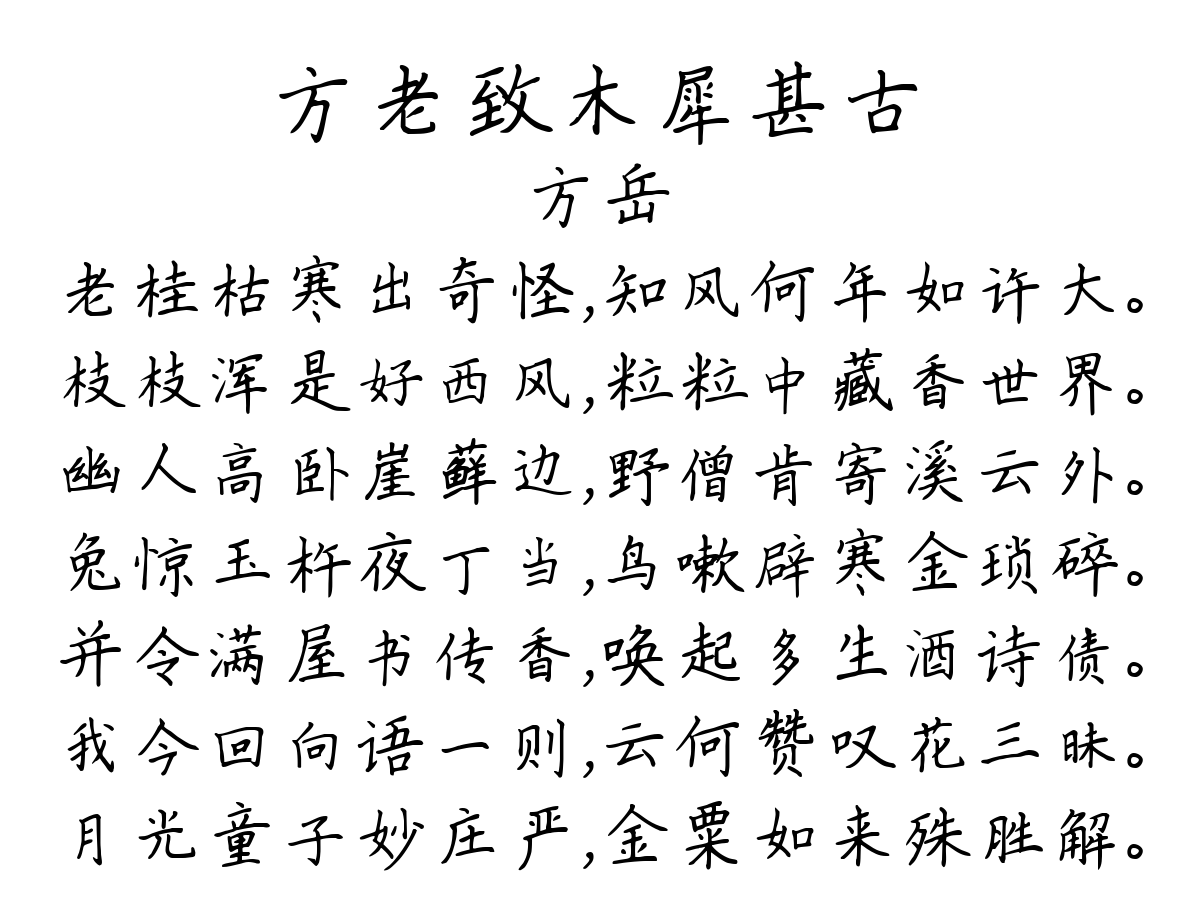 方老致木犀甚古
方岳
老桂枯寒出奇怪,知风何年如许大。
枝枝浑是好西风,粒粒中藏香世界。
幽人高卧崖藓边,野僧肯寄溪云外。
兔惊玉杵夜丁当,鸟嗽辟寒金琐碎。
并令满屋书传香,唤起多生酒诗债。
我今回向语一则,云何赞叹花三昧。
月光童子妙庄严,金粟如来殊胜解。